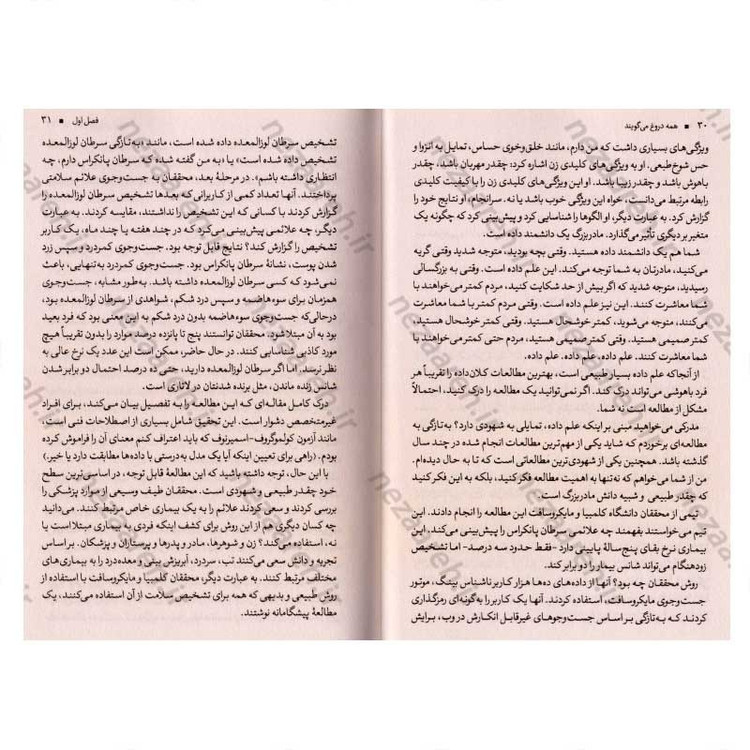 ۳۰ ■ همه دروغ می‌گویند
ویژگی‌های بسیاری داشت که من دارم، مانند خلق‌وخوی حساس، تمایل به انزوا و
حس شوخ‌طبعی. او به ویژگی‌های کلیدی زن اشاره کرد: چقدر مهربان باشد، چقدر
باهوش باشد و چقدر زیبا باشد. او این ویژگی‌های کلیدی زن را با کیفیت کلیدی
رابطه مرتبط می‌دانست، خواه این ویژگی خوب باشد یا نه. سرانجام، او نتایج خود را
گزارش کرد. به عبارت دیگر، او الگوها را شناسایی کرد و پیش‌بینی کرد که چگونه یک
متغیر بر دیگری تأثیر می‌گذارد. مادربزرگ یک دانشمند داده است.
شما هم یک دانشمند داده هستید. وقتی بچه بودید، متوجه شدید وقتی گریه
می‌کنید، مادرتان به شما توجه می‌کند. این علم داده است. وقتی به بزرگسالی
رسیدید، متوجه شدید که اگر بیش از حد شکایت کنید، مردم کمتر می‌خواهند با
شما معاشرت کنند. این نیز علم داده است. وقتی مردم کمتر با شما معاشرت
می‌کنند، متوجه می‌شوید، کمتر خوشحال هستید. وقتی کمتر خوشحال هستید،
کمتر صمیمی هستید. وقتی کمتر صمیمی هستید، مردم حتی کمتر می‌خواهند با
شما معاشرت کنند. علم داده. علم داده. علم داده.
از آنجا که علم داده بسیار طبیعی است، بهترین مطالعات کلان‌داده را تقریباً هر
فرد باهوشی می‌تواند درک کند. اگر نمی‌توانید یک مطالعه را درک کنید، احتمالاً
مشکل از مطالعه است نه شما.
مدرکی می‌خواهید مبنی بر اینکه علم داده، تمایلی به شهودی دارد؟ به‌تازگی به
مطالعه‌ای برخوردم که شاید یکی از مهم‌ترین مطالعات انجام شده در چند سال
گذشته باشد. همچنین یکی از شهودی‌ترین مطالعاتی است که تا به حال دیده‌ام.
من از شما می‌خواهم که نه‌تنها به اهمیت مطالعه فکر کنید، بلکه به این فکر کنید
که چقدر طبیعی و شبیه دانش مادربزرگ است.
تیمی از محققان دانشگاه کلمبیا و مایکروسافت این مطالعه را انجام دادند. این
تیم می‌خواستند بفهمند چه علائمی سرطان پانکراس را پیش‌بینی می‌کند. این
بیماری نرخ بقای پنج‌سالهٔ پایینی دارد -فقط حدود سه درصد- اما تشخیص
زودهنگام می‌تواند شانس بیمار را دو برابر کند.
روش محققان چه بود؟ آنها از داده‌های ده‌ها هزار کاربر ناشناس بینگ، موتور
جست‌وجوی مایکروسافت، استفاده کردند. آنها یک کاربر را به‌گونه‌ای رمزگذاری
کردند که به‌تازگی بر اساس جست‌وجوهای غیرقابل انکارش در وب، برایش
فصل اول ■ ۳۱
تشخیص سرطان لوزالمعده داده شده است، مانند، «به‌تازگی سرطان لوزالمعده
تشخیص داده شده است» یا «به من گفته شده که سرطان پانکراس دارم، چه
انتظاری داشته باشم». در مرحلهٔ بعد، محققان به جست‌وجوی علائم سلامتی
پرداختند. آنها تعداد کمی از کاربرانی که بعدها تشخیص سرطان لوزالمعده را
گزارش کردند با کسانی که این تشخیص را نداشتند، مقایسه کردند. به عبارت
دیگر، چه علائمی پیش‌بینی می‌کرد که در چند هفته یا چند ماه، یک کاربر
تشخیص را گزارش کند؟ نتایج قابل توجه بود. جست‌وجوی کمردرد و سپس زرد
شدن پوست، نشانهٔ سرطان پانکراس بود. جست‌وجوی کمردرد به‌تنهایی، باعث
نمی‌شود که کسی سرطان لوزالمعده داشته باشد. به‌طور مشابه، جست‌وجوی
همزمان برای سوءهاضمه و سپس درد شکم، شواهدی از سرطان لوزالمعده بود،
درحالی‌که جست‌وجوی سوءهاضمه بدون درد شکم به این معنی بود که فرد بعید
بود به آن مبتلا شود. محققان توانستند پنج تا پانزده درصد موارد را بدون تقریباً هیچ
مورد کاذبی شناسایی کنند. در حال حاضر، ممکن است این عدد یک نرخ عالی به
نظر نرسد. اما اگر سرطان لوزالمعده دارید، حتی ده درصد احتمال دو برابر شدن
شانس زنده ماندن، مثل برنده شدنتان در لاتاری است.
درک کامل مقاله‌ای که این مطالعه را به تفصیل بیان می‌کند، برای افراد
غیرمتخصص دشوار است. این تحقیق شامل بسیاری از اصطلاحات فنی است،
مانند آزمون کولموگروف-اسمیرنوف که باید اعتراف کنم معنای آن را فراموش کرده
بودم. (راهی برای تعیین اینکه آیا یک مدل به‌درستی با داده‌ها مطابقت دارد یا خیر.)
با این حال، توجه داشته باشید که این مطالعهٔ قابل توجه، در اساسی‌ترین سطح
خود چقدر طبیعی و شهودی است. محققان طیف وسیعی از موارد پزشکی را
بررسی کردند و سعی کردند علائم را به یک بیماری خاص مرتبط کنند. می‌دانید
چه کسان دیگری هم از این روش برای کشف اینکه فردی به بیماری مبتلا است یا
نه، استفاده می‌کند؟ زن و شوهرها، مادر و پدرها و پرستاران و پزشکان. بر اساس
تجربه و دانش سعی می‌کنند تب، سردرد، آبریزش بینی و معده‌درد را به بیماری‌های
مختلف مرتبط کنند. به عبارت دیگر، محققان کلمبیا و مایکروسافت با استفاده از
روش طبیعی و بدیهی که همه برای تشخیص سلامت از آن استفاده می‌کنند، یک
مطالعهٔ پیشگامانه نوشتند.